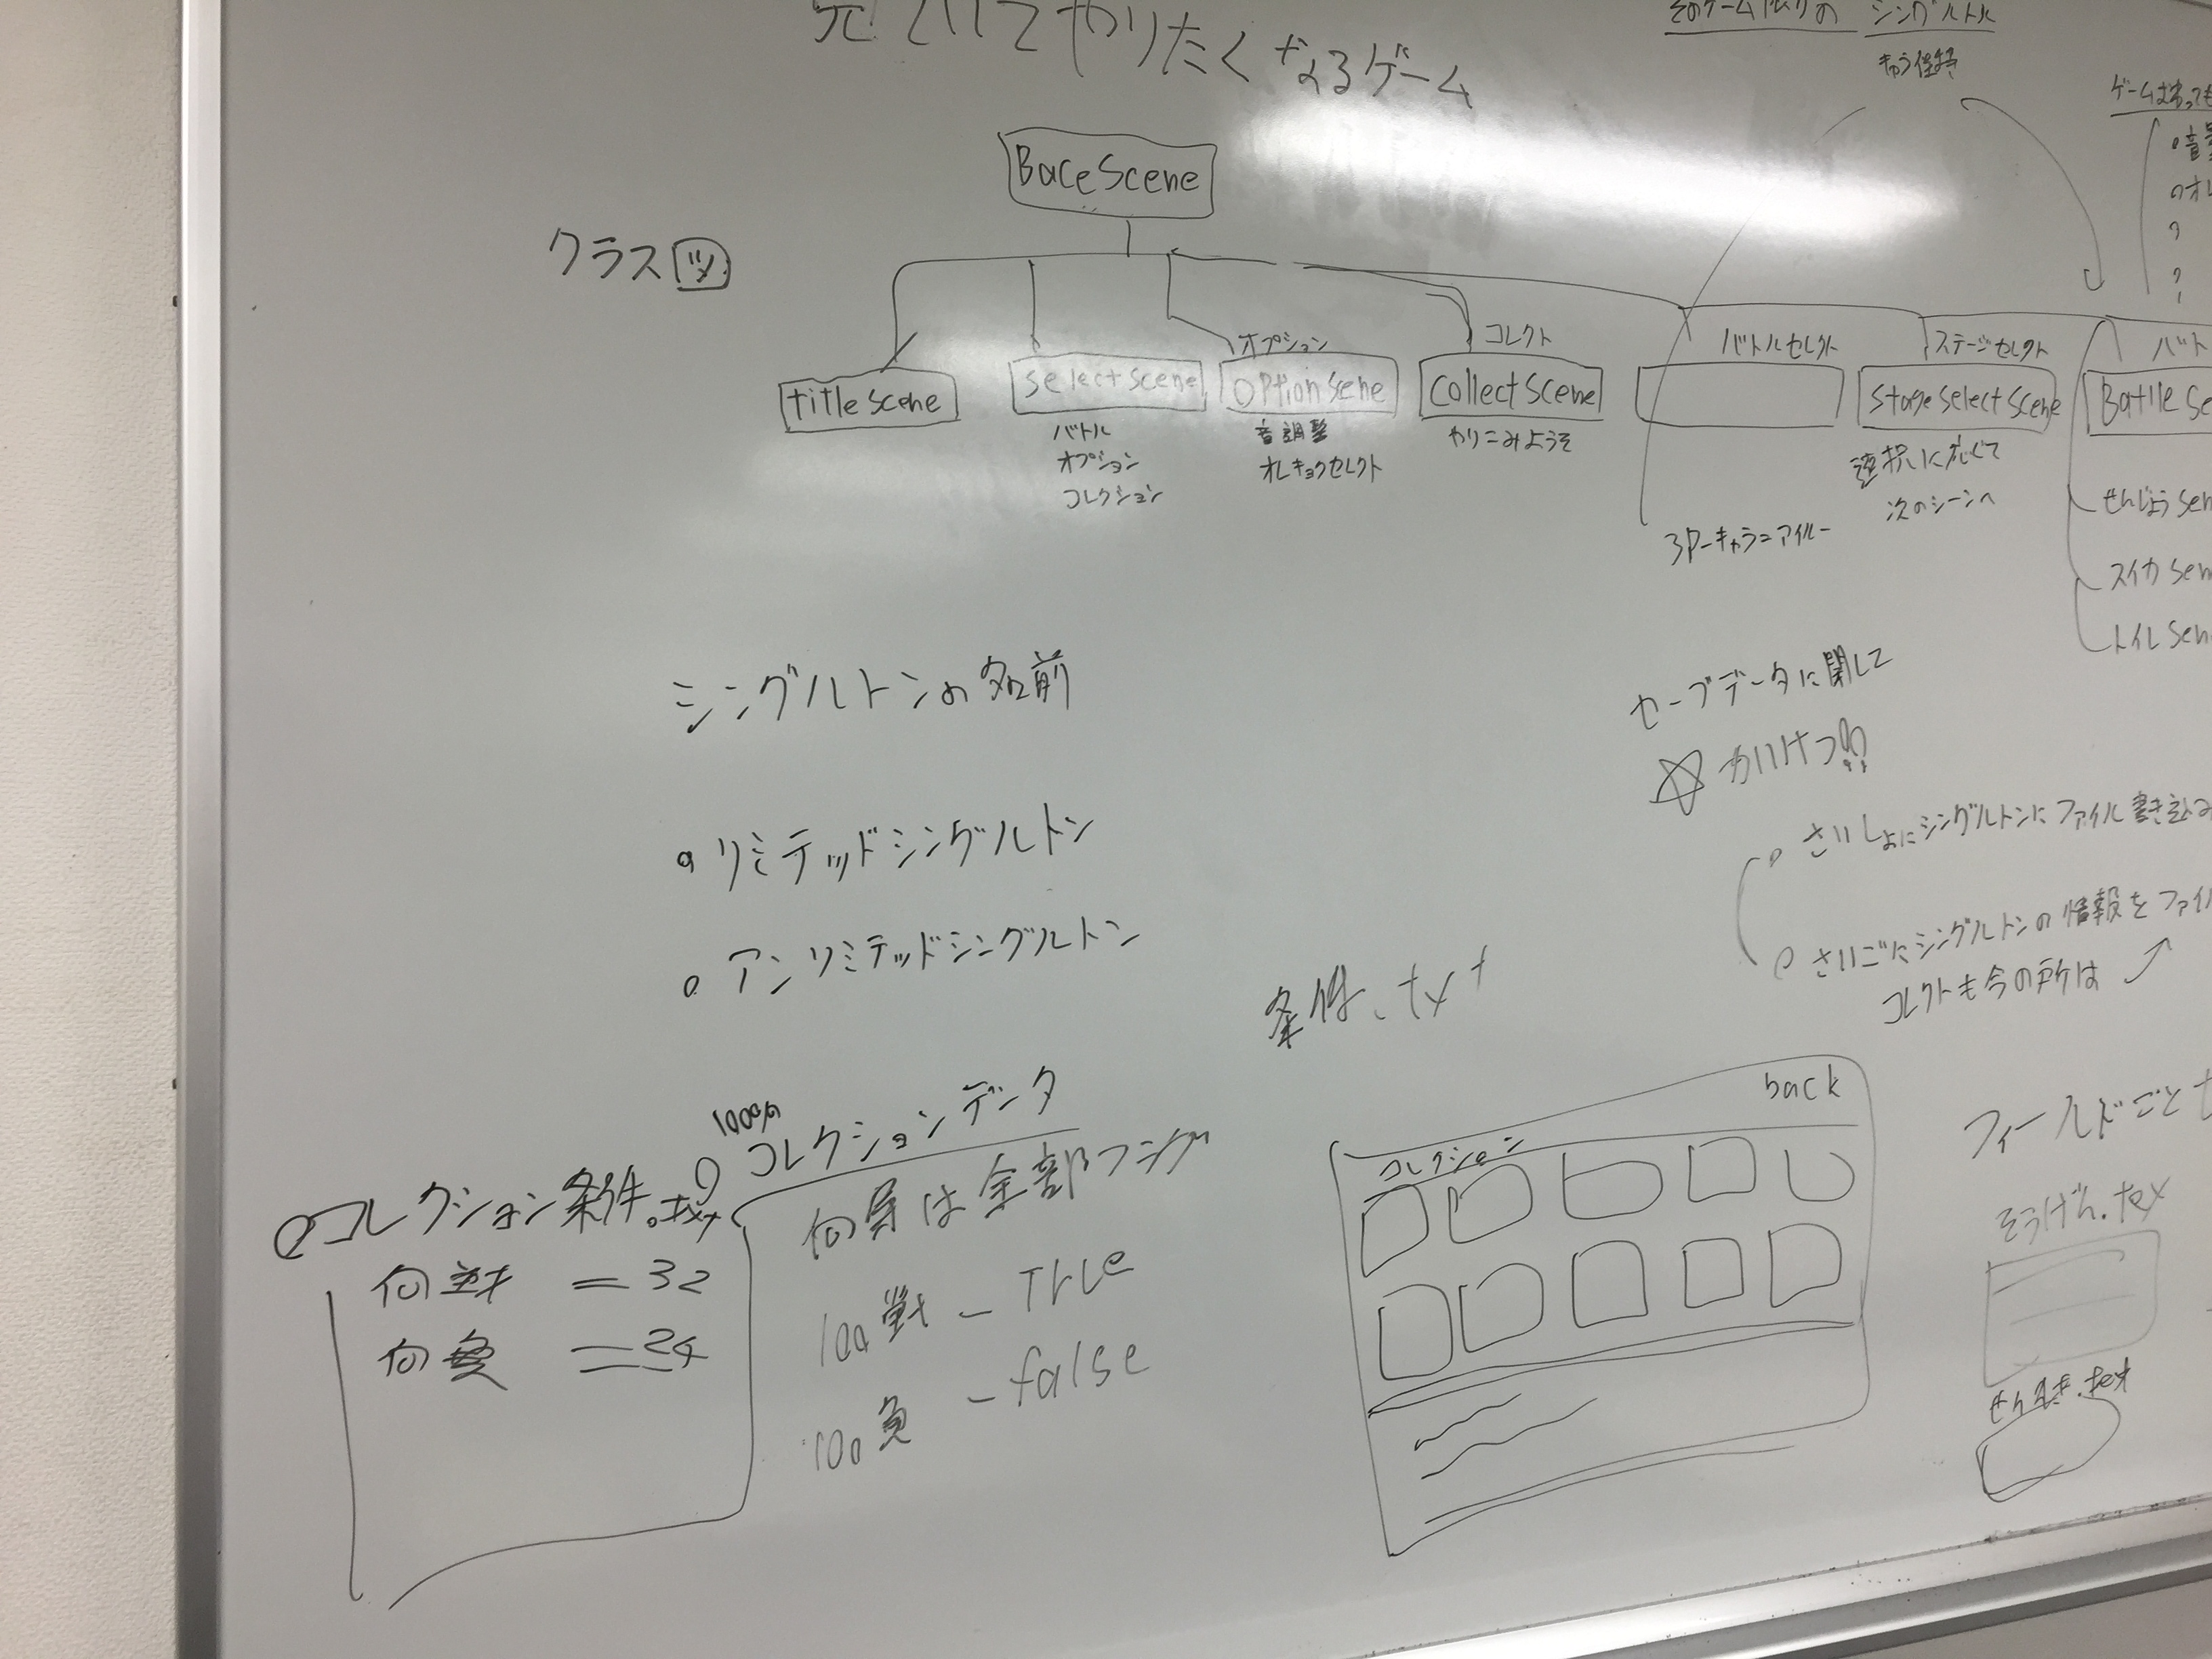 見ていてやりたくなるゲーム
シングルトン
BaceScene
クラス図
titleScene
selectScene
バトル
オプション
コレクション
オプション
OptionScene
音調整
オレキョクセレクト
コレクト
CollectScene
やりこみようそ
バトルセレクト
3P-キャラ=アイルー
ステージセレクト
StageSelectScene
選択に応じて
次のシーンへ
バト
Batlle Sc
せんじょうSen
スイカSen
トイレSen
シングルトンの名前
リミテッドシングルトン
アンリミテッドシングルトン
セーブデータに関して
☆かいけつ!!
さいしょにシングルトンにファイル書き込み
さいごにシングルトンの情報をファイル
コレクトも今の所は
条件.txt
コレクション条件.txt
何戦 =32
何負 =24
コレクションデータ
何勝は全部フラグ
100戦 - True
100負 - false
back
コレクション
フィールドごと
そうげん.tex